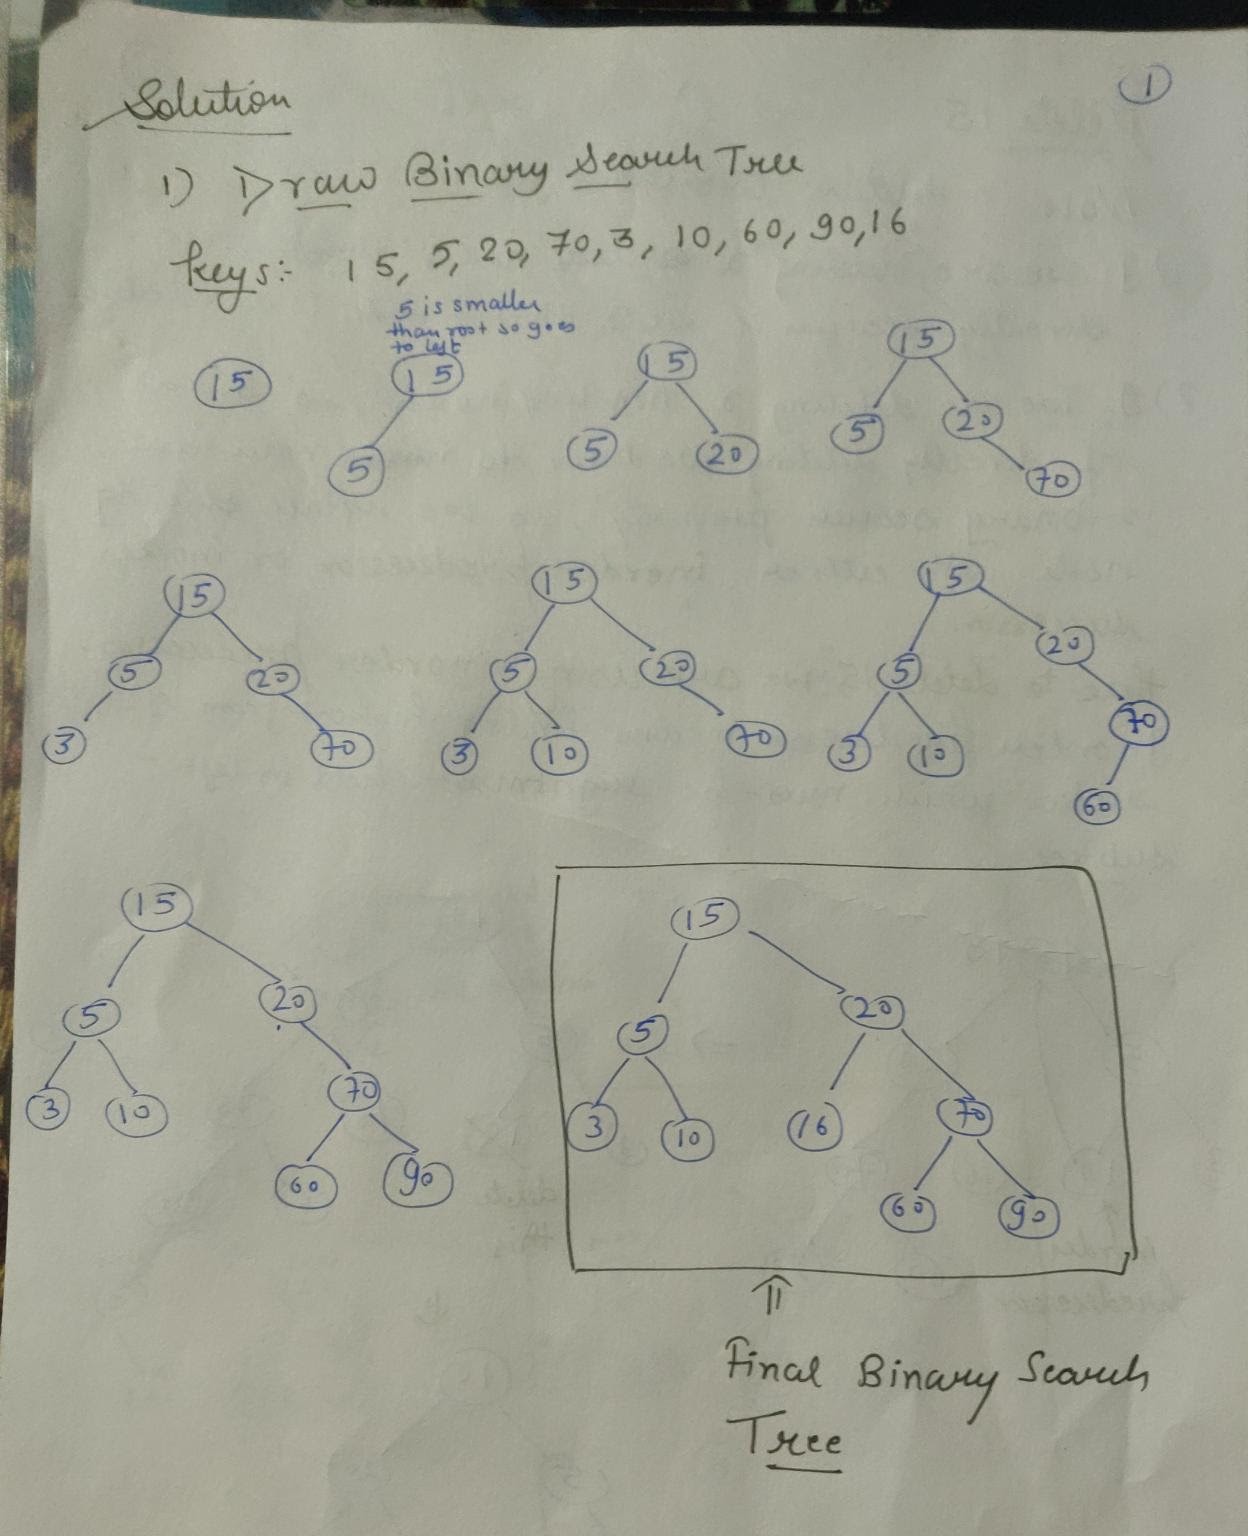 1
Solution
1) Draw Binary Search Tree
keys:- 15, 5, 20, 70, 3, 10, 60, 90, 16
5 is smaller
than root so goes
to left
15
15
5
15
5 20
15
5 20
70
15
5 20
3 70
15
5 20
3 10 70
15
5 20
3 10 70
60
15
5 20
3 10 70
60 90
15
5 20
3 10 16 70
60 90
Final Binary Search
Tree